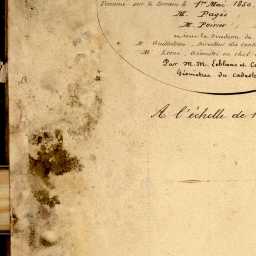 Terminé sur le terrain le 1er Mai 1850,
M. Pagès
M. Poirier
en sous la Direction de
M. Guilloteau, Directeur des Cont
M. Leroi, Géomètre en chef
Par M.M. Leblanc et C
Géomètres du cadastre
A l'échelle de 1